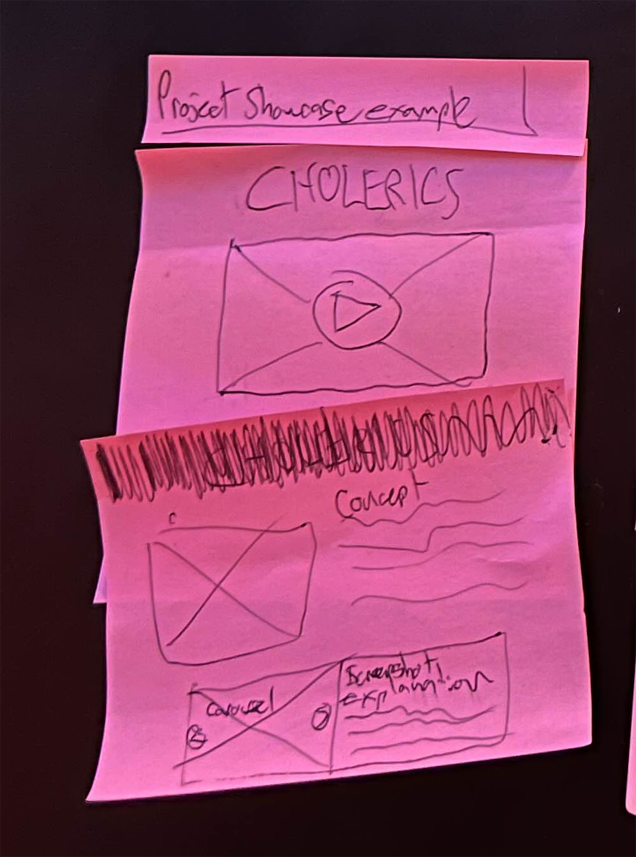 Project Showcase example
CHOLERICS
Concept
Carousel
Screenshot
explanation